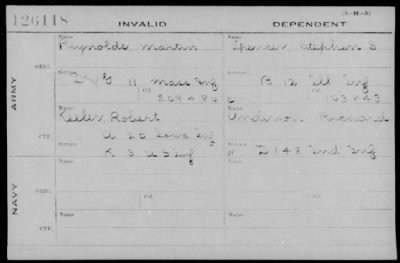 126118
(3—H—5)
INVALID DEPENDENT
Name Name
Reynolds Martin Spencer, Stephen S
ORIG. Service Service
G 11 Mass Inf B 12 Ill Inf
Ctf. Ctf.
209486 103-43
ARMY
Name Name
Keeler Robert Anderson Richard
Service Service
CTF. A 20 Iowa Inf D 148 Ind Inf
K 3 U S Inf
NAVY
Name Name
ORIG. Ctf. Ctf.
Name Name
CTF.